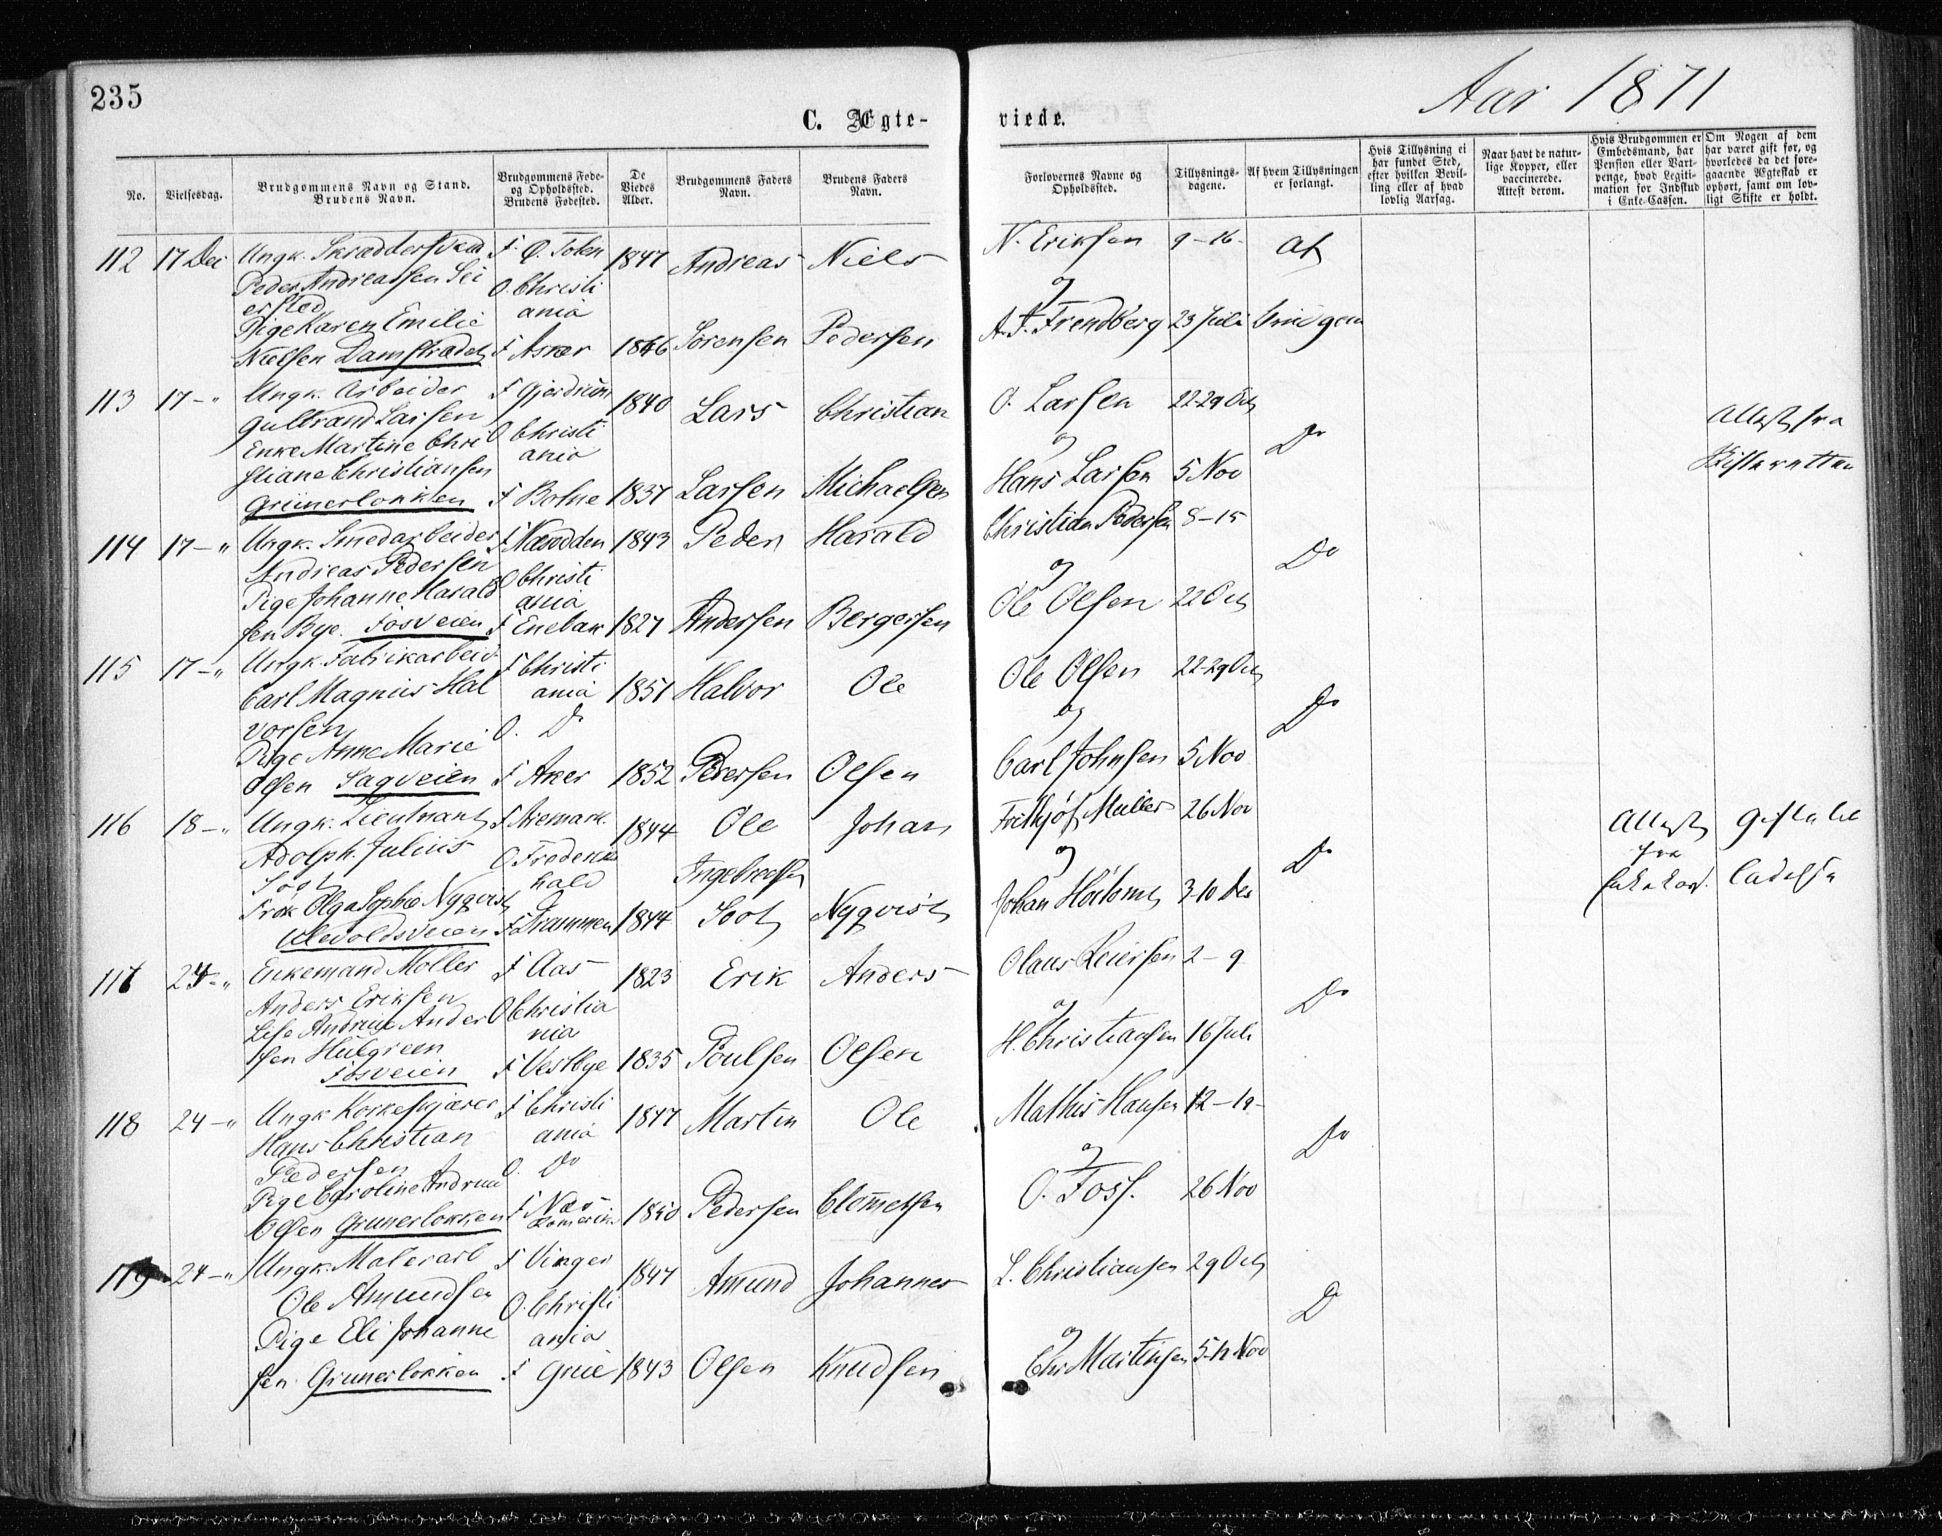 235
Aar 1871
C. Ægte-
viede.
No.
Vielsesdag.
Brudgommens Navn og Stand.
Brudens Navn.
Brudgommens Føde-
og Opholdssted.
Brudens Fødested.
De
Viedes
Alder.
Brudgommens Faders
Navn.
Brudens Faders
Navn.
Forlovernes Navne og
Opholdssted.
Tillysnings-
dagene.
Af hvem Tillysningen
er forlangt.
Hvis Tillysning ei
har fundet Sted,
efter hvilken Bevil-
ling eller af hvad
lovlig Aarsag.
Naar havt de natur-
lige Kopper, eller
vaccinerede.
Attest derom.
Hvis Brudgommen er
Embedsmand, har
Pension eller Vart-
penge, hvad Legiti-
mation for Indskud
i Enke-Cassen.
Om Nogen af dem
har været gift før, og
hvorledes da det fore-
gaaende Ægteskab er
ophørt, samt om lov-
ligt Skifte er holdt.
112 17 Dec Ungk. Skræddersvend F Ø. Toten 1847 Andreas Niels N. Eriksen 9-16- af
Peder Andreassen Sei O. Christi
ersted ania og
Pige Karen Emilie A. T. Frendberg 23 Juli Brudgom
Nielsen Damstrædet F Asker 1846 Sørensen Pedersen
113 17-" Ungk. Arbeider F Gjerdrum 1840 Lars Christian O. Larsen 22-29 Oct
Gulbrand Larsen Attest fra
Enke Martine Chri O Christi og Do
stiane Christiansen ania Hans Larsen 5 Nov Skifteretten
Grünerløkken F Botne 1837 Larsen Michaelsen
114 17-" Ungk. Smedarbeider F Næsodden 1843 Peder Harald Christian Pedersen 8-15
Andreas Pedersen O Christi og Do
Pige Johanne Harald ania Ole Olsen 22 Oct
sen Bye. Fosveien F Enebak 1827 Andersen Bergersen
115 17-" Ungk. Fabrikarbeid. F Christi Ole Olsen 22-29 Oct
Carl Magnus Hal ania 1851 Halvor Ole og Do
vorsen O. Do
Pige Anne Marie Carl Johnsen 5 Nov
Olsen Sagveien F Aker 1852 Pedersen Olsen
116 18-" Ungk. Lieutnant F Aremark 1844 Ole Johan Frithjof Muller 26 Nov Attest Gifte til
Adolph Julius O Frederiks Ingebretsen og Do fra
Soot hald Johan 3-10 Dec
Frøk Olga Sophie Nyqvist
Ulevoldsveien F Drammen 1844 Soot Nyqvist
117 24-" Enkemand Møller F Aas 1823 Erik Anders Olaus Reiersen 2-9
Anders Eriksen O Christia og Do
Andrine Ander nia H. Christiansen 16 Juli
sen
Fosveien F Vestbye 1835 Poulsen Olsen
118 24-" Ungk Korkeskjærer F Christi 1847 Martin Ole Mathis Hansen 12-19-
Hans Christian ania og Do
Pedersen O. Do O. Foss. 26 Nov
Pige Caroline Andrine F Næs
Olsen Grunerløkken Romerike 1850 Pedersen Clemetsen
119 24-" Ungk. Malerarb F Vinger 1847 Amund Johannes L. Christiansen 29 Oct
Ole Amundsen O. Christi Do
Pige Eli Johanne ania og
sen Grunerløkken F Grue 1843 Olsen Knudsen Chr Martinsen 5-12 Nov